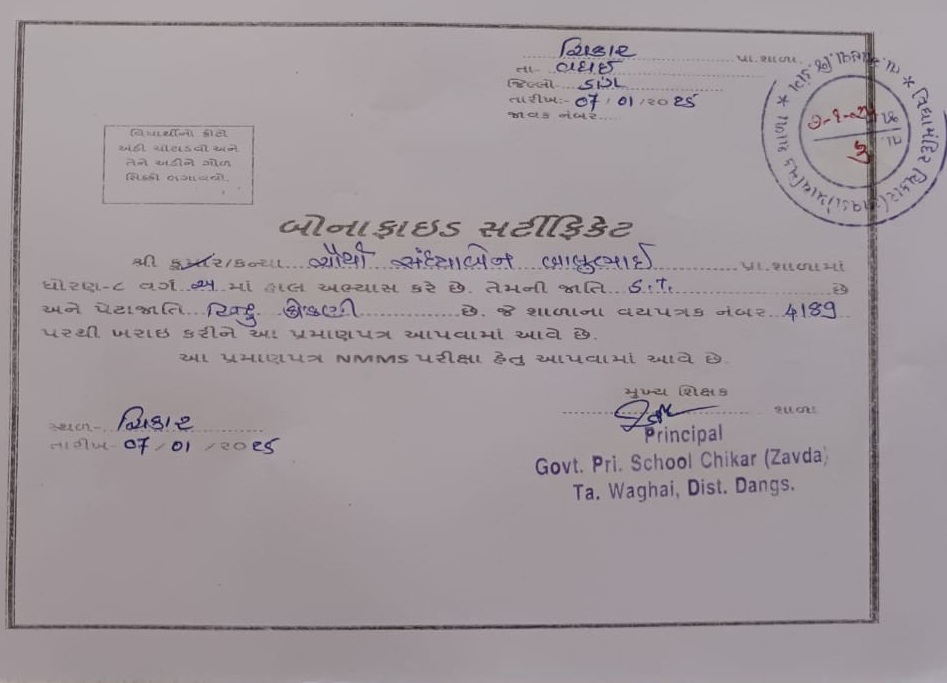 ચિકાર પ્રા.શાળા
તા- વઘઈ
જિલ્લો ડાંગ
તારીખ:- 07/01/2025
જાવક નંબર....
વિદ્યાર્થીનો ફોટો
અહીં ચોંટાડવો અને
તેને અડીને ગોળ
સિક્કો લગાવવો.
બોનાફાઇડ સર્ટીફિકેટ
શ્રી કુમાર/કન્યા ચૌધરી સંધ્યાબેન બાબુભાઈ પ્રા.શાળામાં
ધોરણ-૮ વર્ગ અ માં હાલ અભ્યાસ કરે છે. તેમની જાતિ S.T. છે
અને પેટાજાતિ હિન્દુ કોકણી છે. જે શાળાના વયપત્રક નંબર 4189
પરથી ખરાઇ કરીને આ પ્રમાણપત્ર આપવામાં આવે છે.
આ પ્રમાણપત્ર NMMS પરીક્ષા હેતુ આપવામાં આવે છે.
મુખ્ય શિક્ષક
શાળા
સ્થળ- ચિકાર
તારીખ- 07/01/2025
Principal
Govt. Pri. School Chikar (Zavda)
Ta. Waghai, Dist. Dangs.